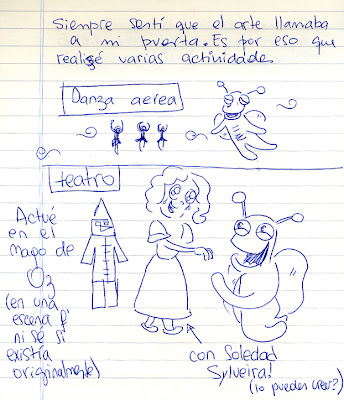 Siempre sentí que el arte llamaba
a mi puerta. Es por eso que
realisé varias actividades.
Danza aerea
teatro
Actué
en el
mago de
O3
(en una
escena q'
ni se si
existía
originalmente)
con Soledad
Sylveira!
(lo puedes creer?)